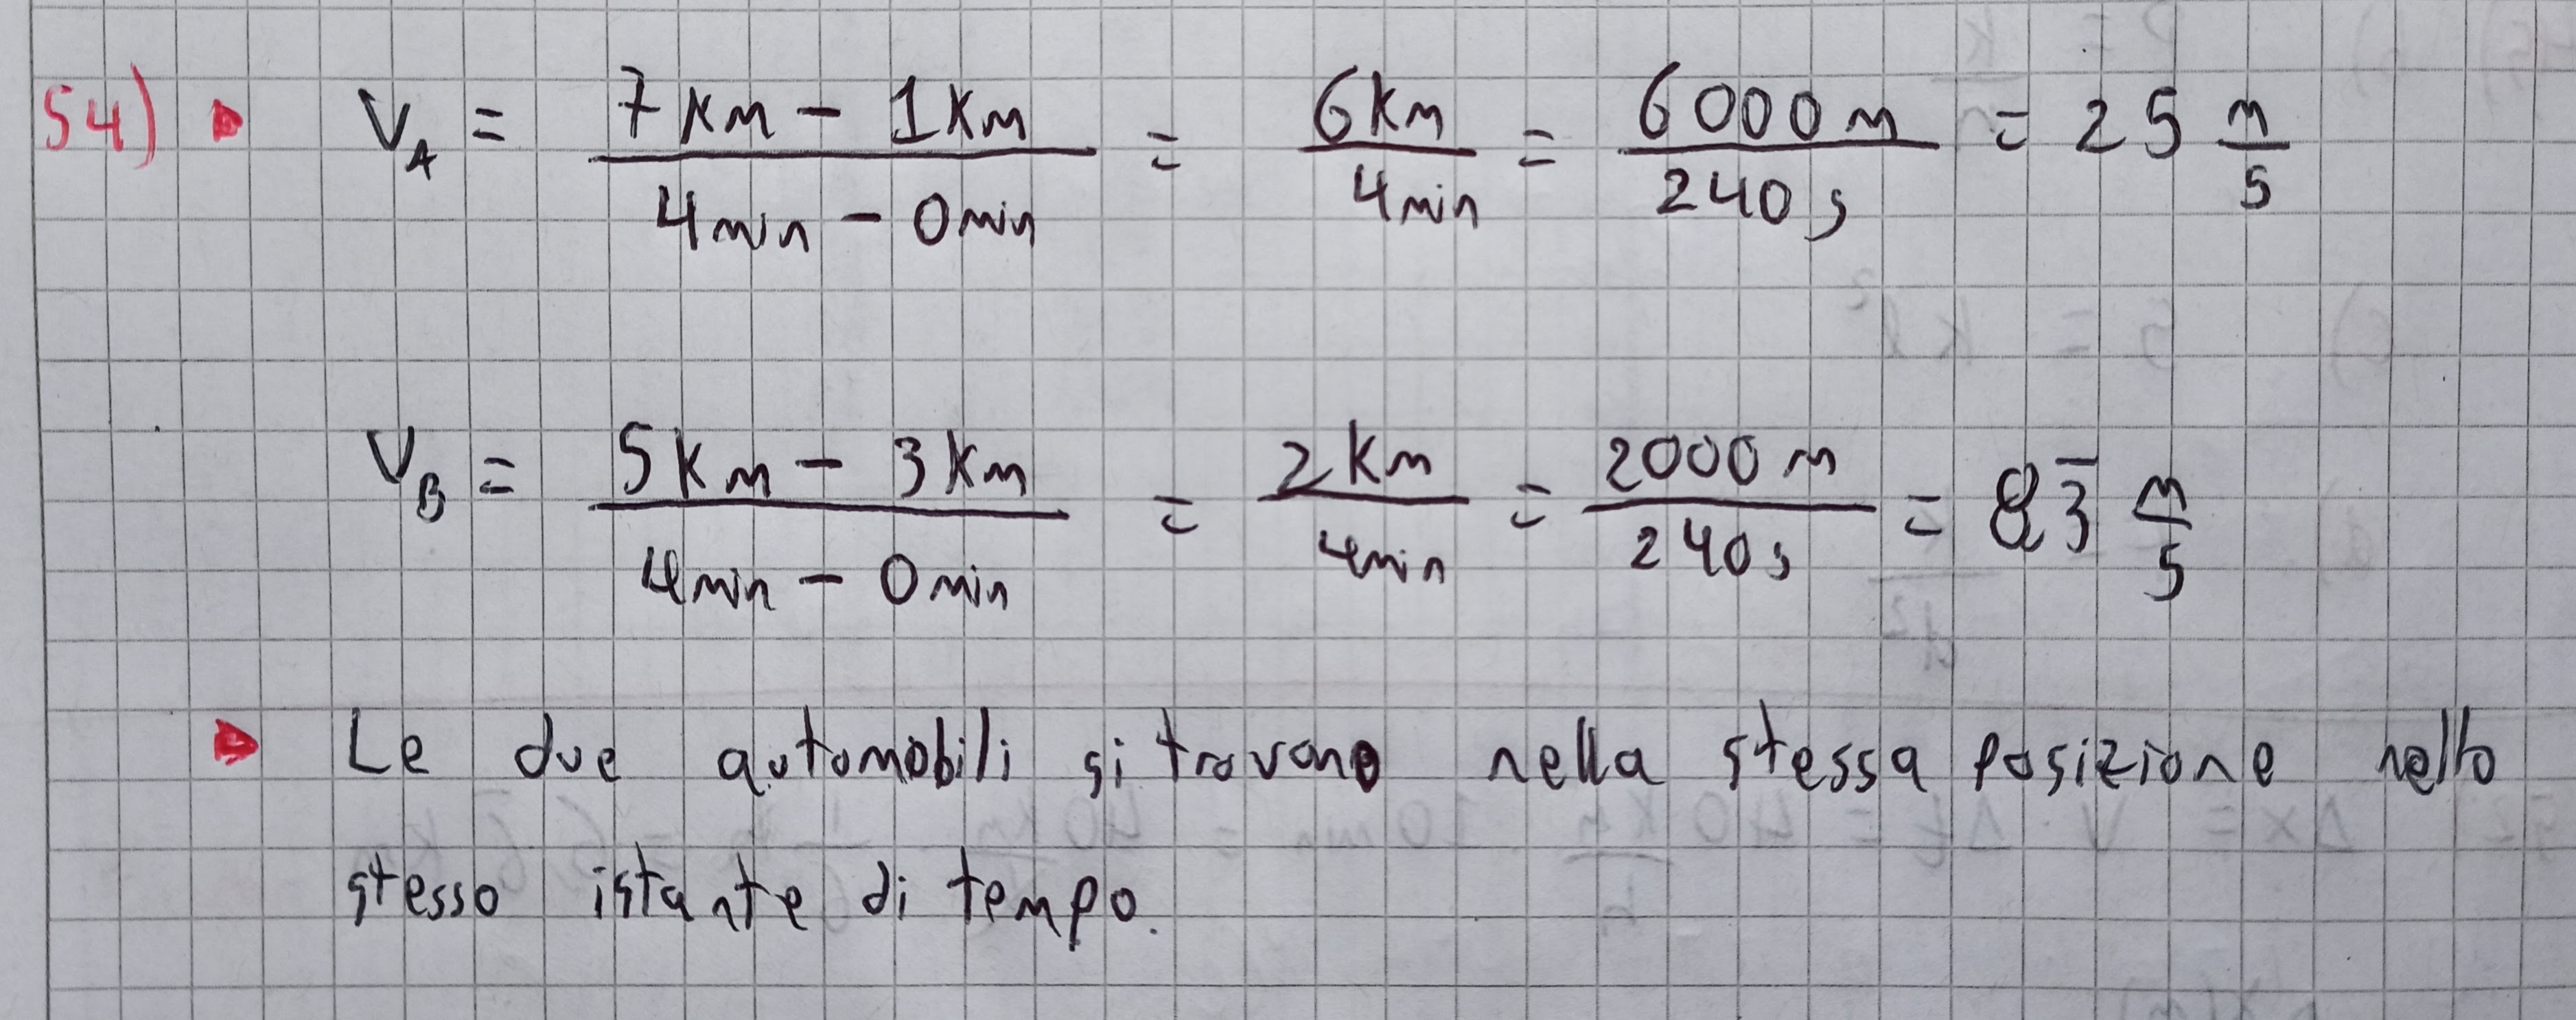 54) ▶ V_A = (7 Km - 1 Km) / (4 min - 0 min) = 6 Km / 4 min = 6000 m / 240 s = 25 m/s
V_B = (5 Km - 3 Km) / (4 min - 0 min) = 2 Km / 4 min = 2000 m / 240 s = 8,3̅ m/s
▶ Le due automobili si trovano nella stessa posizione nello
stesso istante di tempo.